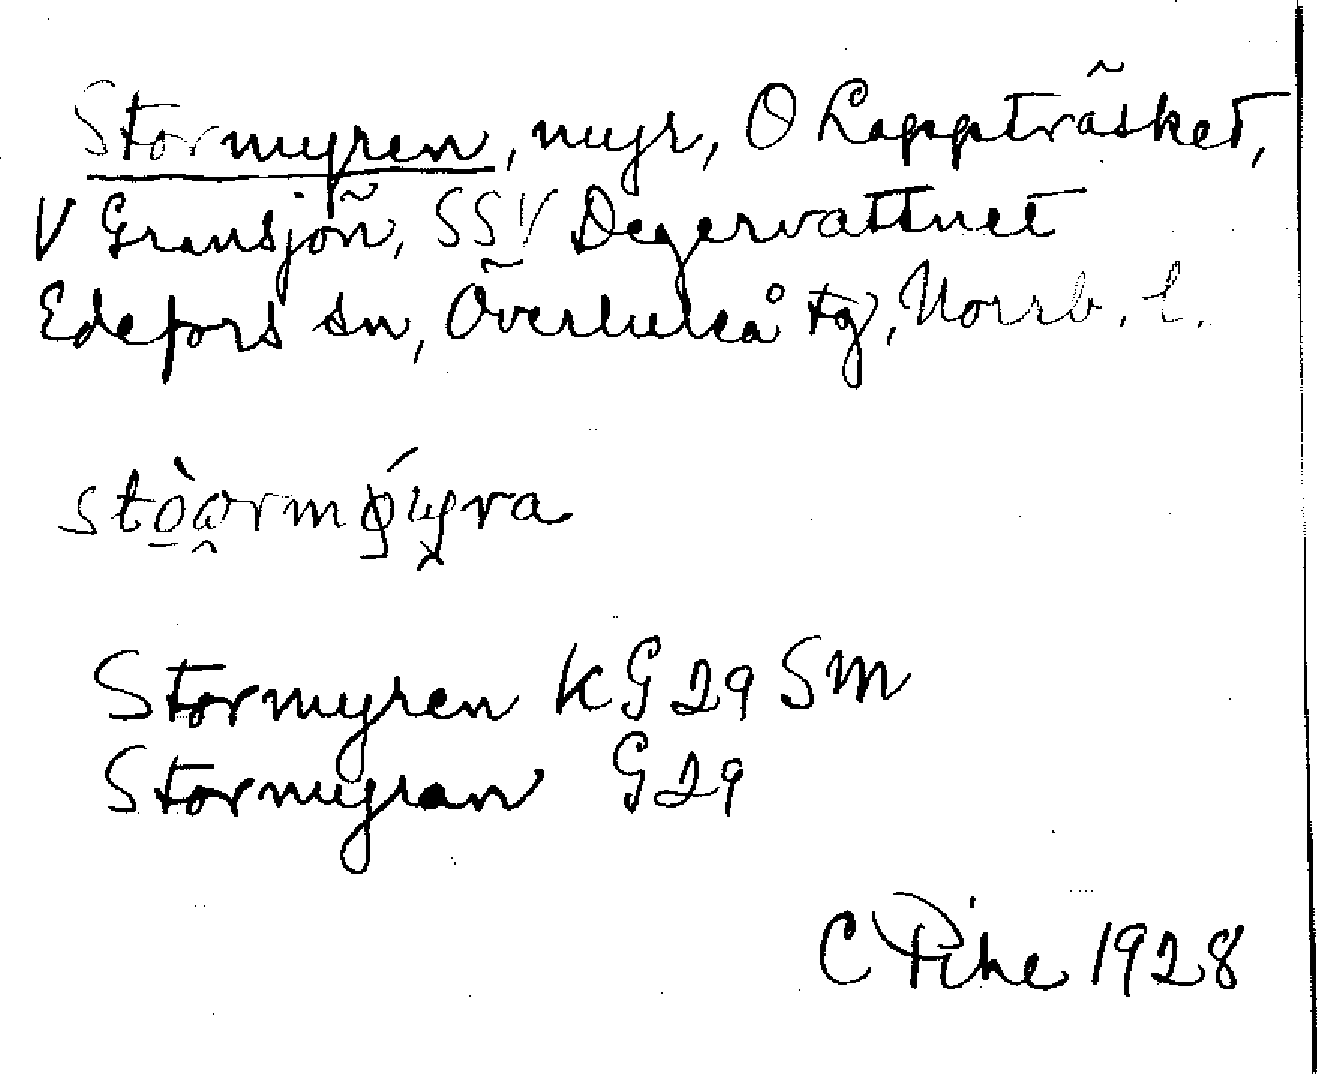 Stormyren, myr, O Lappträsket,
V Gransjön, SSV Degervattnet
Edefors sn, Överluleå tg, Norrb. l.
Stormyren KG29Sm
Stormyran G29
C Pihe 1928